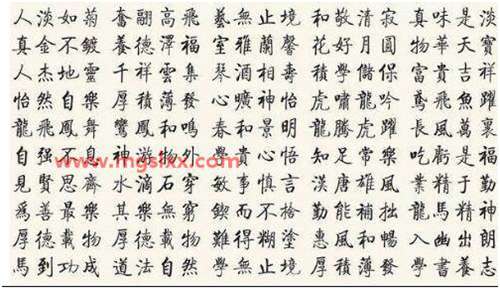 人淡如菊 奮翮高飛 藝無止境 和敬清寂 真味是淡
真金不鍍 養德澤福 室雅蘭馨 花好月圓 物華天寶
人杰地靈 千祥雲集 琴酒相壽 積學儲保 富貴吉祥
怡然自樂 厚積薄發 心曠神怡 虎嘯龍吟 鳶飛魚躍
龍飛鳳舞 鸞鳳和鳴 春和景明 龍騰虎躍 長風萬裏
自强不息 神游物外 學貴心悟 知足常樂 吃虧是福
www.mgsixx.com
見賢思齊 水滴石穿 敏事慎言 漢唐雄風 業精于勤
爲善最樂 其樂無窮 鍥而不捨 勤能補拙 龍馬精神
厚德載物 厚德載物 難得糊塗 惠風和暢 入幽出朗
馬到功成 道法自然 學無止境 厚積薄發 學書養志